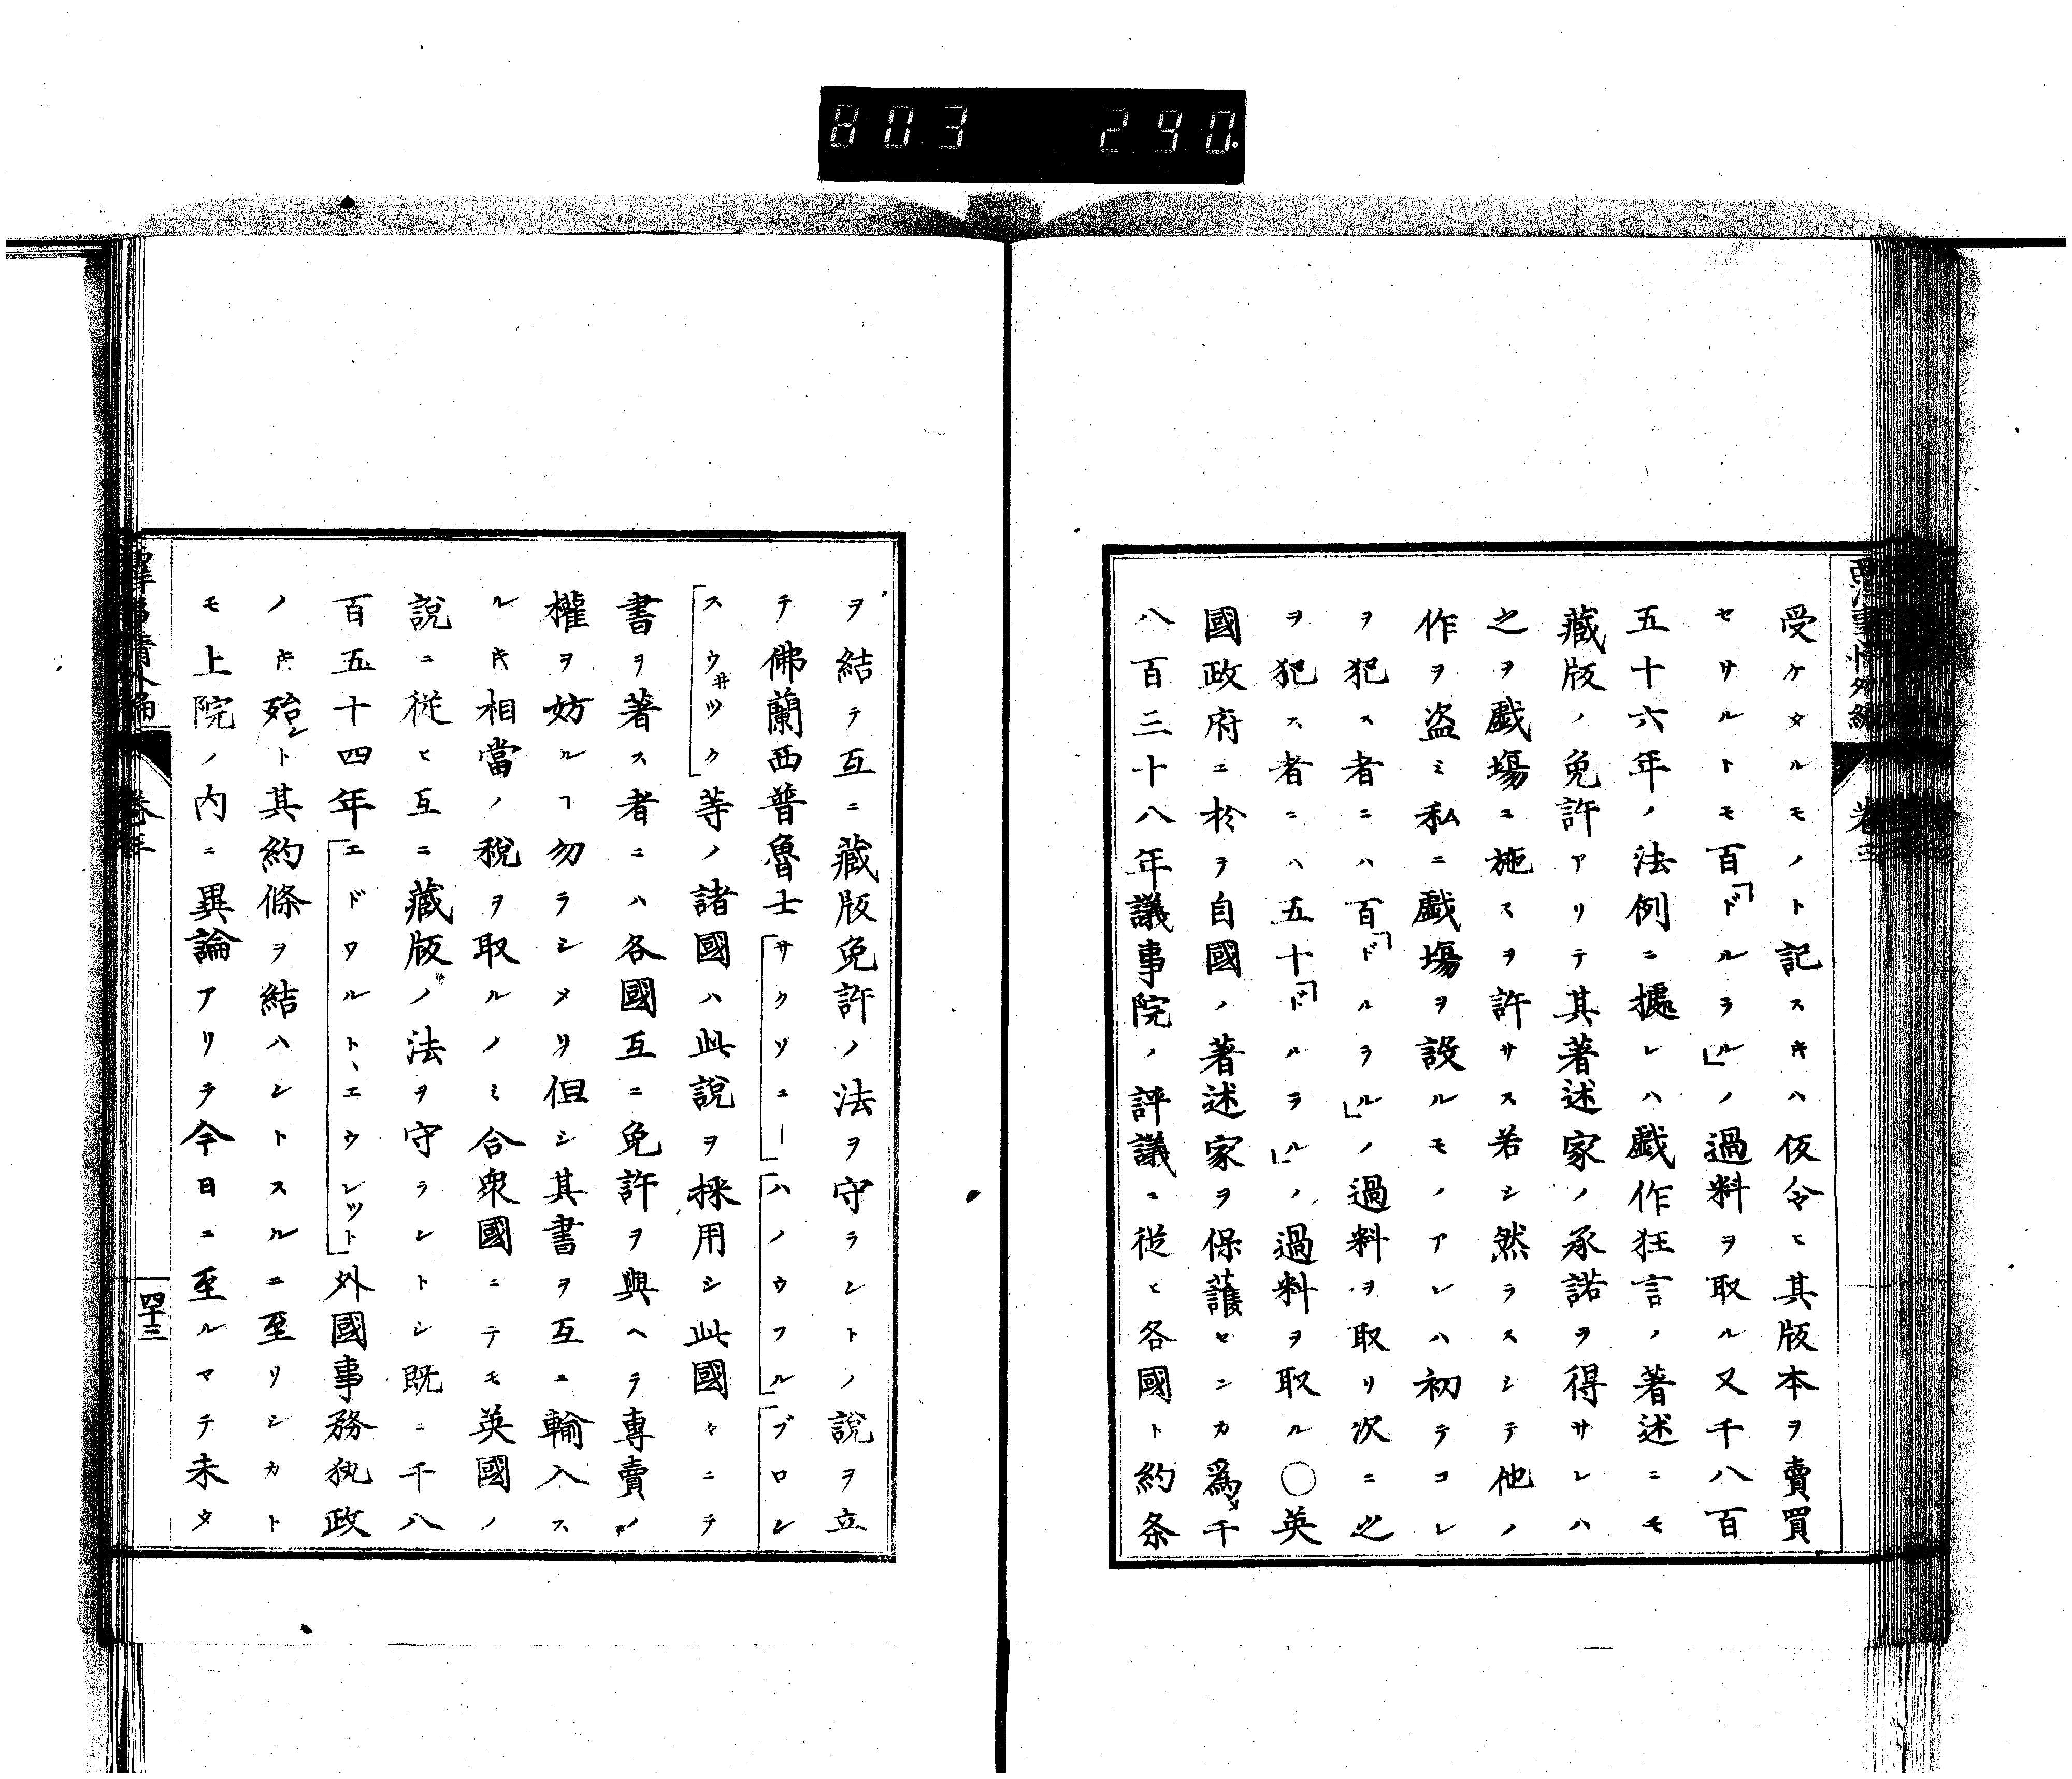 803 290.
西洋事情外編 卷三
受ケタルモノト記スキハ仮令ヒ其版本ヲ賣買
セサルトモ百「ドルラル」ノ過料ヲ取ル又千八百
五十六年ノ法例ニ據レハ戯作狂言ノ著述ニモ
藏版ノ免許アリテ其著述家ノ承諾ヲ得サレハ
之ヲ戯塲ニ施スヲ許サス若シ然ラスシテ他ノ
作ヲ盗ミ私ニ戯塲ヲ設ルモノアレハ初テコレ
ヲ犯ス者ニハ百「ドルラル」ノ過料ヲ取リ次ニ之
ヲ犯ス者ニハ五十「ドルラル」ノ過料ヲ取ル○英
國政府ニ於ヲ自國ノ著述家ヲ保護センカ爲メ千
八百三十八年議事院ノ評議ニ從ヒ各國ト約条
ヲ結テ互ニ藏版免許ノ法ヲ守ラントノ說ヲ立
テ佛蘭西普魯士「サクソニー」「ハノウフル」「ブロン
スウ井ツク」等ノ諸國ハ此說ヲ採用シ此國々ニテ
書ヲ著ス者ニハ各國互ニ免許ヲ與ヘラ專賣ノ
權ヲ妨ルヿ勿ラシメリ但シ其書ヲ互ニ輸入ス
ルキ相當ノ稅ヲ取ルノミ合衆國ニテモ英國ノ
說ニ從ヒ互ニ藏版ノ法ヲ守ラントシ既ニ千八
百五十四年「エドワルト、エウレツト」外國事務執政
ノキ殆ント其約條ヲ結ハントスルニ至リシカト
モ上院ノ内ニ異論アリテ今日ニ至ルマテ未タ
西洋事情外編 卷三 四十三